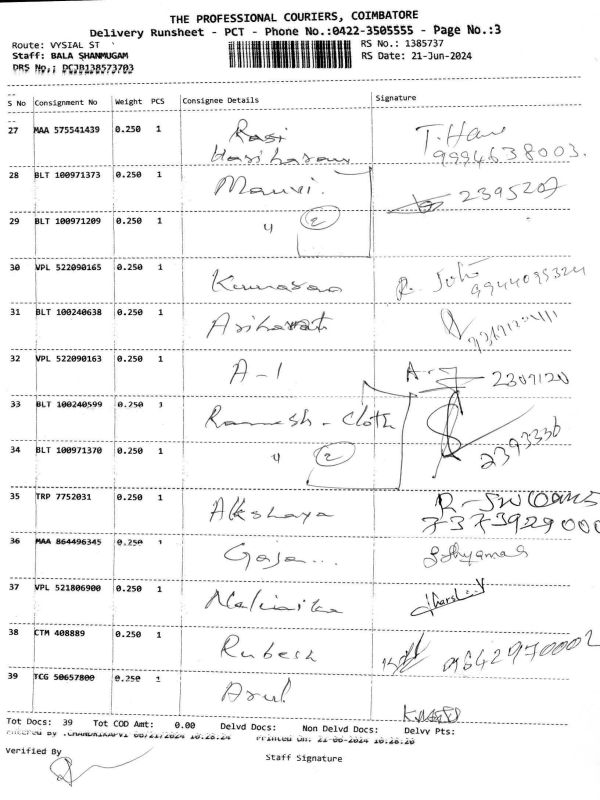 THE PROFESSIONAL COURIERS, COIMBATORE
Delivery Runsheet - PCT - Phone No.:0422-3505555 - Page No.:3
Route: VYSIAL ST RS No.: 1385737
Staff: BALA SHANMUGAM RS Date: 21-Jun-2024
DRS No.: DCJB138573703
S No Consignment No Weight PCS Consignee Details Signature
27 MAA 575541439 0.250 1 Rasi T. Hari
Hariharan 9994638003.
28 BLT 100971373 0.250 1 Mauvi. 2395207
29 BLT 100971209 0.250 1 " 2
30 VPL 522090165 0.250 1 Kumaran R. 9944095324
31 BLT 100240638 0.250 1 Arihant
32 VPL 522090163 0.250 1 A-1 A- 2309120
33 BLT 100240599 0.250 1 Ramesh - Cloth
34 BLT 100971370 0.250 1 " 2 2393336
35 TRP 7752031 0.250 1 Akshaya
7373929000
36 MAA 864496345 0.250 1 Gaja... S. Shyamala
37 VPL 521806900 0.250 1
38 CTM 408889 0.250 1 Rubesh 9642970002
39 TCG 50657800 0.250 1 Arul
Tot Docs: 39 Tot COD Amt: 0.00 Delvd Docs: Non Delvd Docs: Delvy Pts:
Entered By :CHANDRIKAPVT 06/21/2024 10:28:24 Printed On: 21-06-2024 10:28:26
Verified By Staff Signature